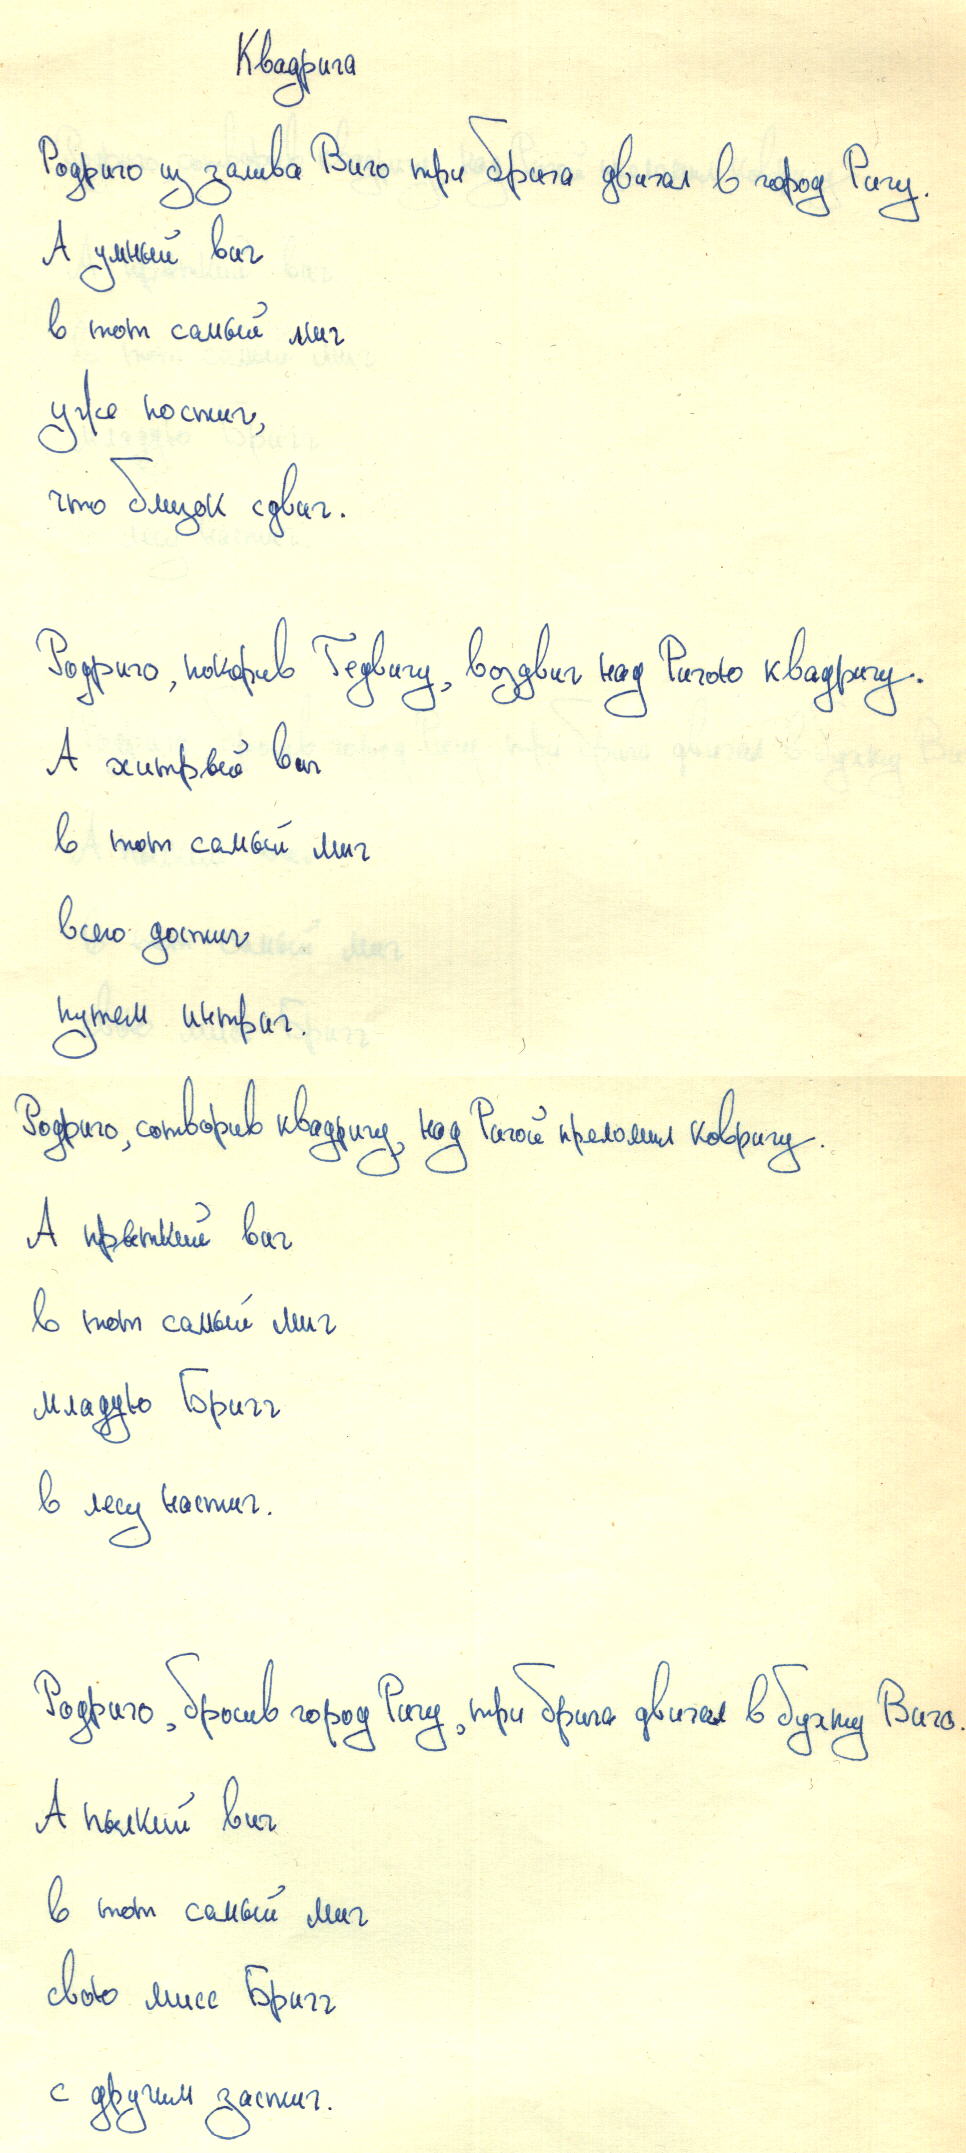 Квадрига
Родриго из залива Виго три брига двигал в город Ригу.
А умный виг
в тот самый миг
уже постиг,
что близок сдвиг.
Родриго, покорив Гедвигу, воздвиг над Ригою квадригу.
А хитрый виг
в тот самый миг
всего достиг
путем интриг.
Родриго, сотворив квадригу, над Ригой преломил ковригу.
А прыткий виг
в тот самый миг
младую Бригг
в лесу настиг.
Родриго, бросив город Ригу, три брига двигал в бухту Виго.
А пылкий виг
в тот самый миг
свою мисс Бригг
с другим застиг.